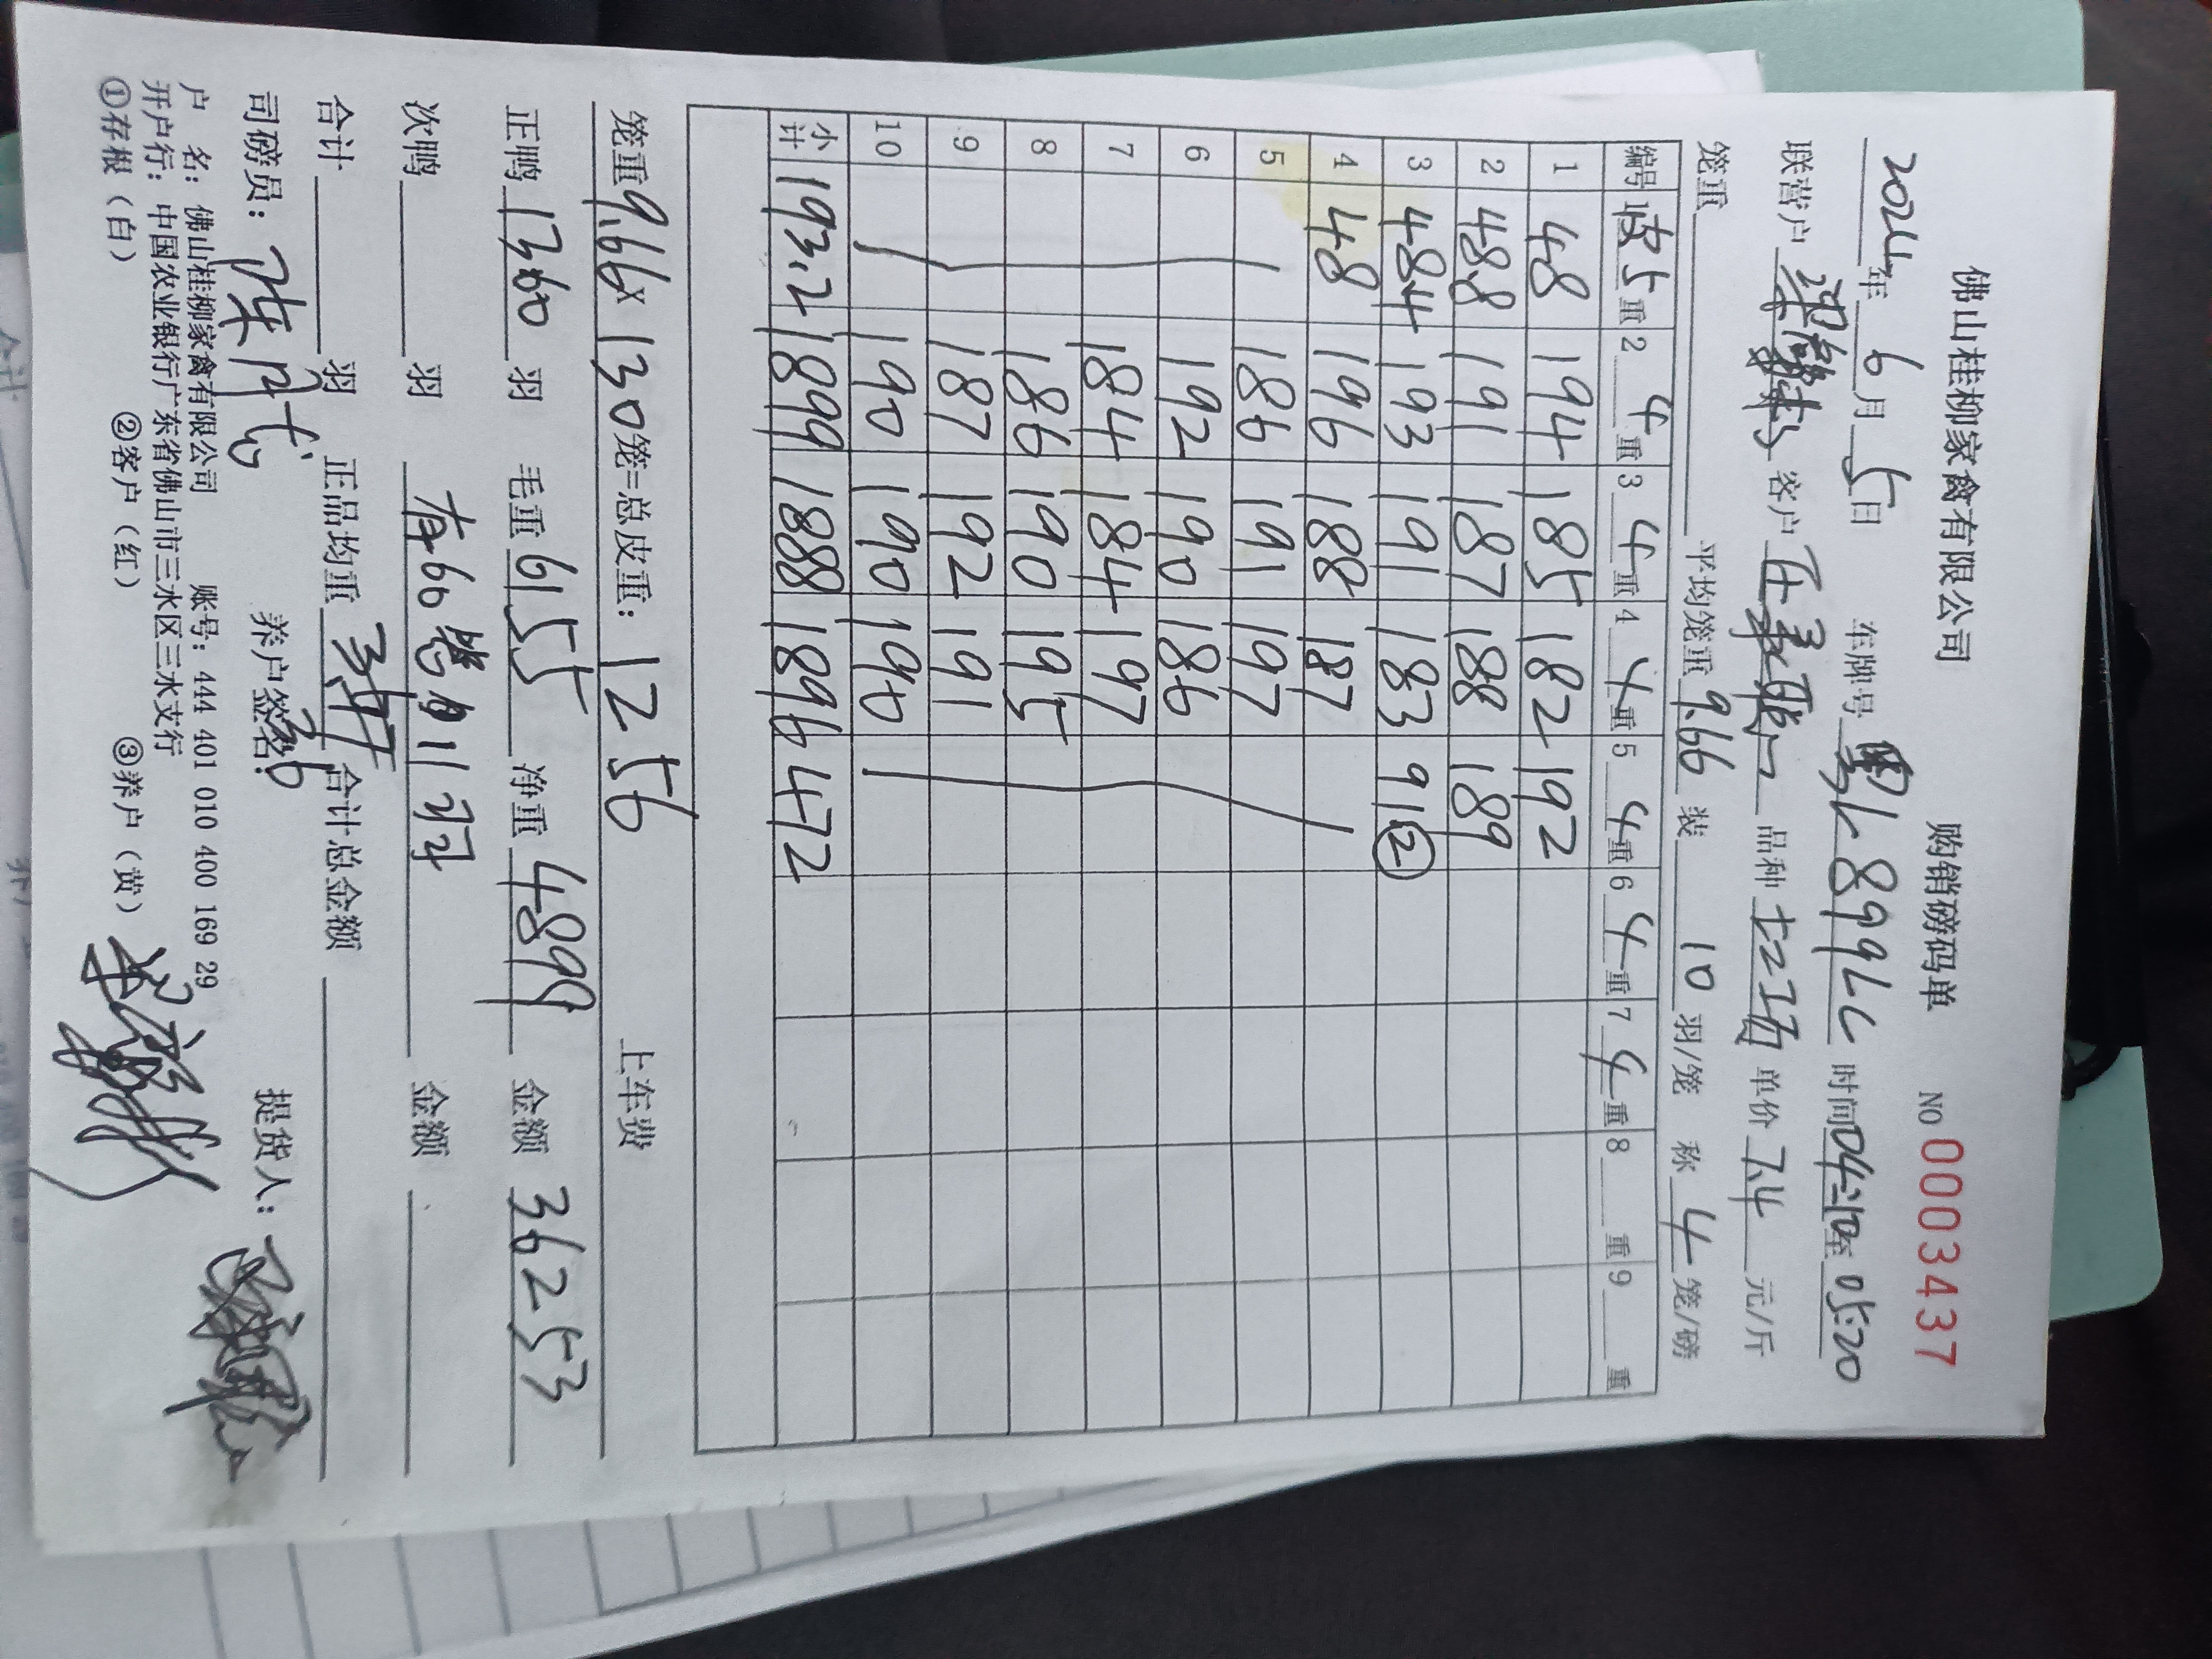 佛山桂柳家禽有限公司 购销磅码单 NO 0003437
2024年6月5日 车牌号 8996L 时间04:10至05:20
联营户 客户 品种 单价7.4元/斤
笼重 平均笼重9.66装10羽/笼 称4笼/磅
编号 皮5重 2 4重 3 4重 4 4重 5 4重 6 4重 7 4重 8 重 9 重
1 48 194 185 182 192
2 48.8 191 187 188 189
3 48.4 193 191 183 91②
4 48 196 188 187
5 186 191 197
6 192 190 186
7 184 184 197
8 186 190 195
9 187 192 191
10 190 190 190
小计 193.2 1899 1888 1896 472
笼重9.66×130笼=总皮重:1256 上车费
正鸭1360羽 毛重6155 净重4899 金额36253
次鸭 羽 金额
合计 羽 正品均重 合计总金额
司磅员: 养户签名: 提货人:
户 名:佛山桂柳家禽有限公司 账号:444 401 010 400 169 29
开户行:中国农业银行广东省佛山市三水区三水支行
①存根(白) ②客户(红) ③养户(黄)